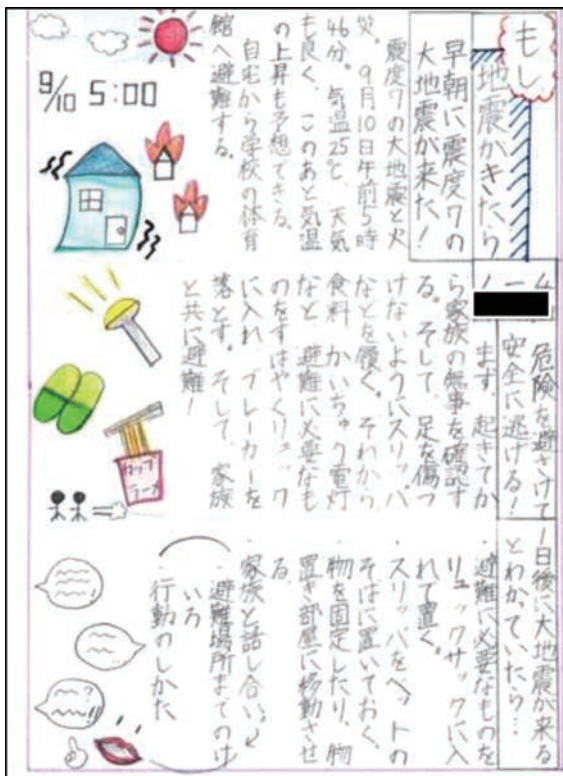 もし
地震がきたら
早朝に震度7の
大地震が来た!
震度7の大地震と火
災。9月10日午前5時
46分。気温25℃、天気
も良く、このあと気温
の上昇も予想できる。
自宅から学校の体育
館へ避難する。
9/10 5:00
危険を避さけて
安全に逃げる!
まず、起きてか
ら家族の無事を確認す
る。そして、足を傷つ
けないようにスリッパ
などを履く。それから
食料、かいちゅう電灯
など、避難に必要なも
のをすばやくリュック
に入れ、ブレーカーを
落とす。そして、家族
と共に避難!
カップ
ラーメン
1日後に大地震が来る
とわかっていたら…
・避難に必要なものを
リュックサックに入
れて置く。
・スリッパをベットの
そばに置いておく。
・物を固定したり、物
置き部屋に移動させ
る
・家族と話し合い。
避難場所までのけ
いろ
行動のしかた
?